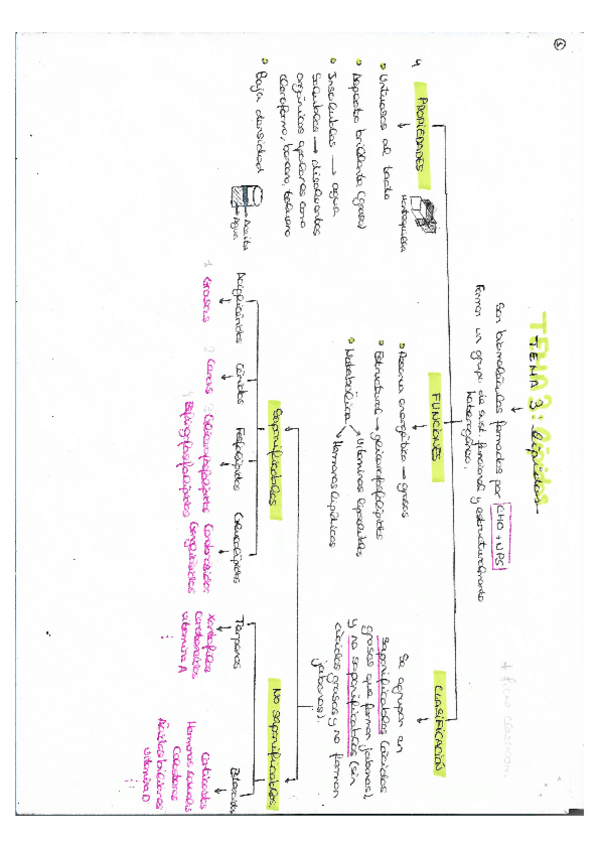 ①
TEMA 3: Lípidos
Son biomoléculas formadas por CHO + NPS
Forman un grupo de sust. funcional y estructuralmente
heterogéneo.
+ ficha classroom
PROPIEDADES
Mantequilla
Untuosos al tacto
Aspecto brillante (graso)
Insolubles → agua
Solubles → disolventes
orgánicos apolares como
cloroformo, benceno, tolueno
Baja densidad
Aceite
Agua
FUNCIONES
Reserva energética → grasas
Estructural → glicerofosfolípidos
Metabólica
Vitaminas liposolubles
Hormonas lipídicas
CLASIFICACIÓN
Se agrupan en
saponificables (ácidos
grasos que forman jabones),
y no saponificables (sin
ácidos grasos y no forman
jabones).
Saponificables
Acilglicéridos
1 Grasas
Céridos
2 Ceras
Fosfolípidos
Glicerofosfolípidos
Esfingofosfolípidos
Glucolípidos
Cerebrósidos
Gangliósidos
No saponificables
Terpenos
Xantofilas
Carotenoides
vitamina A
Esteroides
Corticoides
Hormonas sexuales
Colesterol
Ácidos biliares
vitamina D